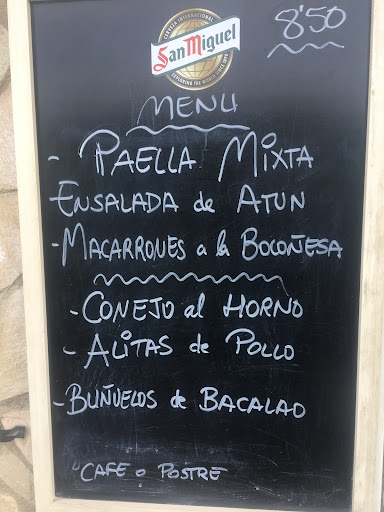 CERVEZA INTERNACIONAL
San Miguel
EXPLORING THE WORLD SINCE 1890
8'50
MENU
- PAELLA MIXTA
- ENSALADA de ATUN
- MACARRONES a la BOLOÑESA
- CONEJO al HORNO
- ALITAS de POLLO
- BUÑUELOS de BACALAO
CAFE o POSTRE